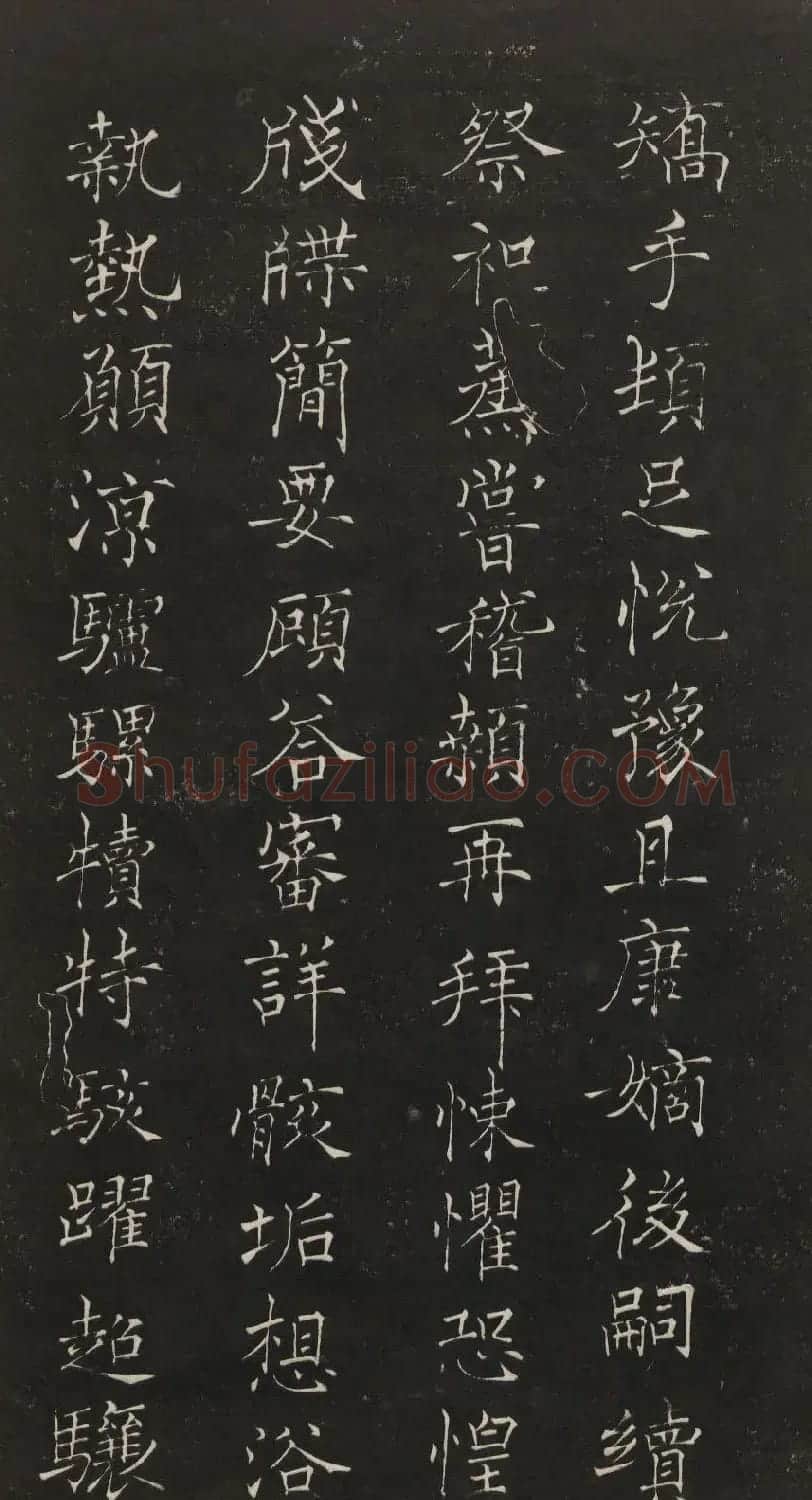 矯手頓足悅豫且康嫡後嗣續
祭祀蒸嘗稽顙再拜悚懼恐惶
牋牒簡要顧答審詳骸垢想浴
執熱願涼驢騾犢特駭躍超驤
Shufaziliao.COM